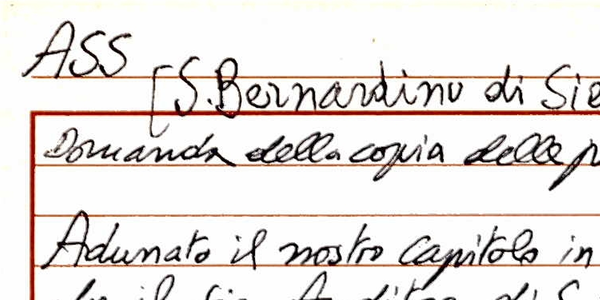 ASS
[S. Bernardino di Sie
Domanda della copia delle p
Adunato il nostro Capitolo in
il Sig. Auditor di S